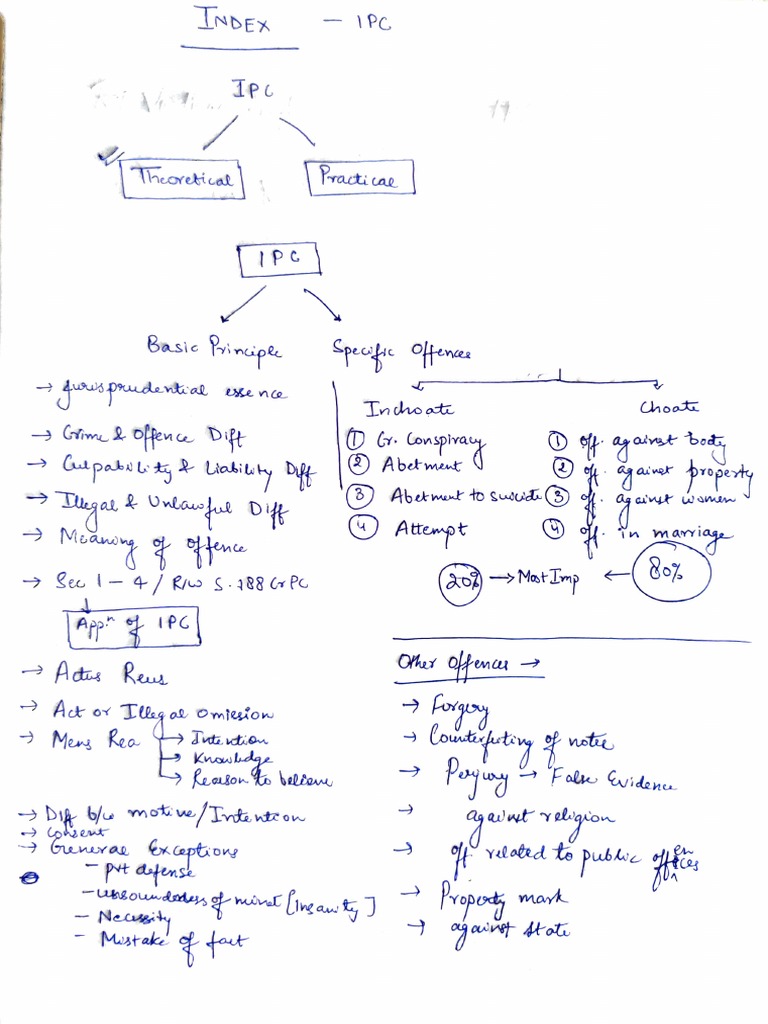 INDEX - IPC
IPC
Theoretical
Practical
IPC
Basic Principle
→ Jurisprudential essence
→ Crime & Offence Diff
→ Culpability & Liability Diff
→ Illegal & Unlawful Diff
→ Meaning of offence
→ Sec 1 - 4 / R/W S. 188 CrPC
Appn of IPC
→ Actus Reus
→ Act or Illegal omission
→ Mens Rea → Intention
→ Knowledge
→ Reason to believe
→ Diff b/w motive/Intention
→ Consent
→ General Exceptions
- pvt defense
- unsoundness of mind [insanity]
- Necessity
- Mistake of fact
Specific Offences
Inchoate
① Cr. Conspiracy
② Abetment
③ Abetment to suicide
④ Attempt
Choate
① off. against body
② off. against property
③ off. against women
④ off. in marriage
20% → Most Imp ← 80%
Other Offences →
→ Forgery
→ Counterfeiting of notes
→ Perjury → False Evidence
→ against religion
→ off. related to public offences
→ Property mark
→ against state